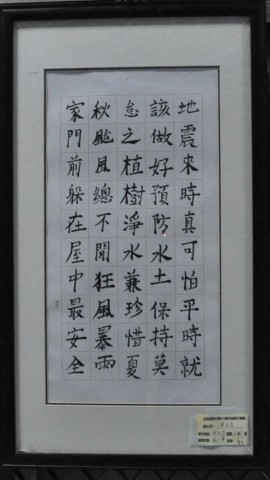 地震來時真可怕平時就
該做好預防水土保持莫
怠之植樹淨水兼珍惜夏
秋颱風總不閒狂風暴雨
家門前躲在屋中最安全